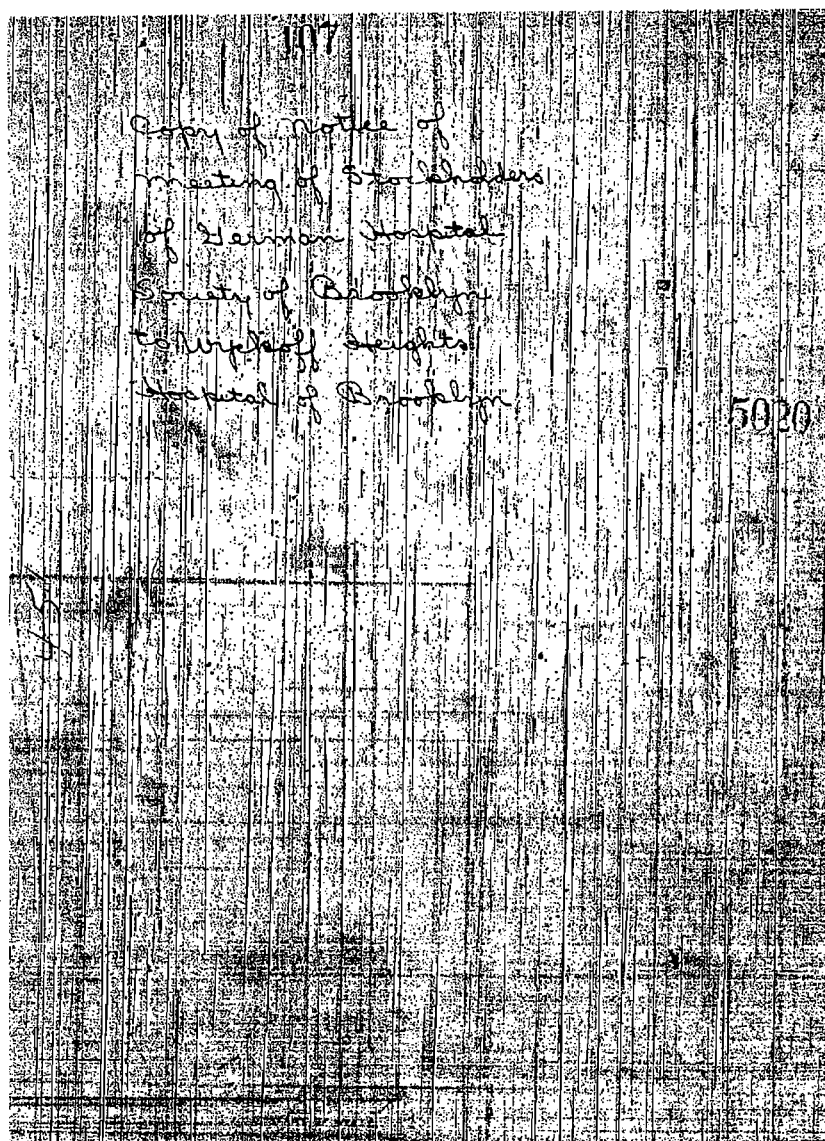 107
Copy of notice of
meeting of Stockholders
of German Hospital
Society of Brooklyn
to Wyckoff Heights
Hospital of Brooklyn
5020